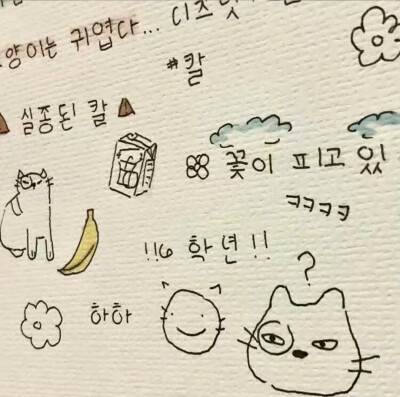 디즈
양이는 귀엽다...
#칼
실종된 칼
꽃이 피고 있
ㅋㅋㅋㅋ
!!6학년!!
하하
?